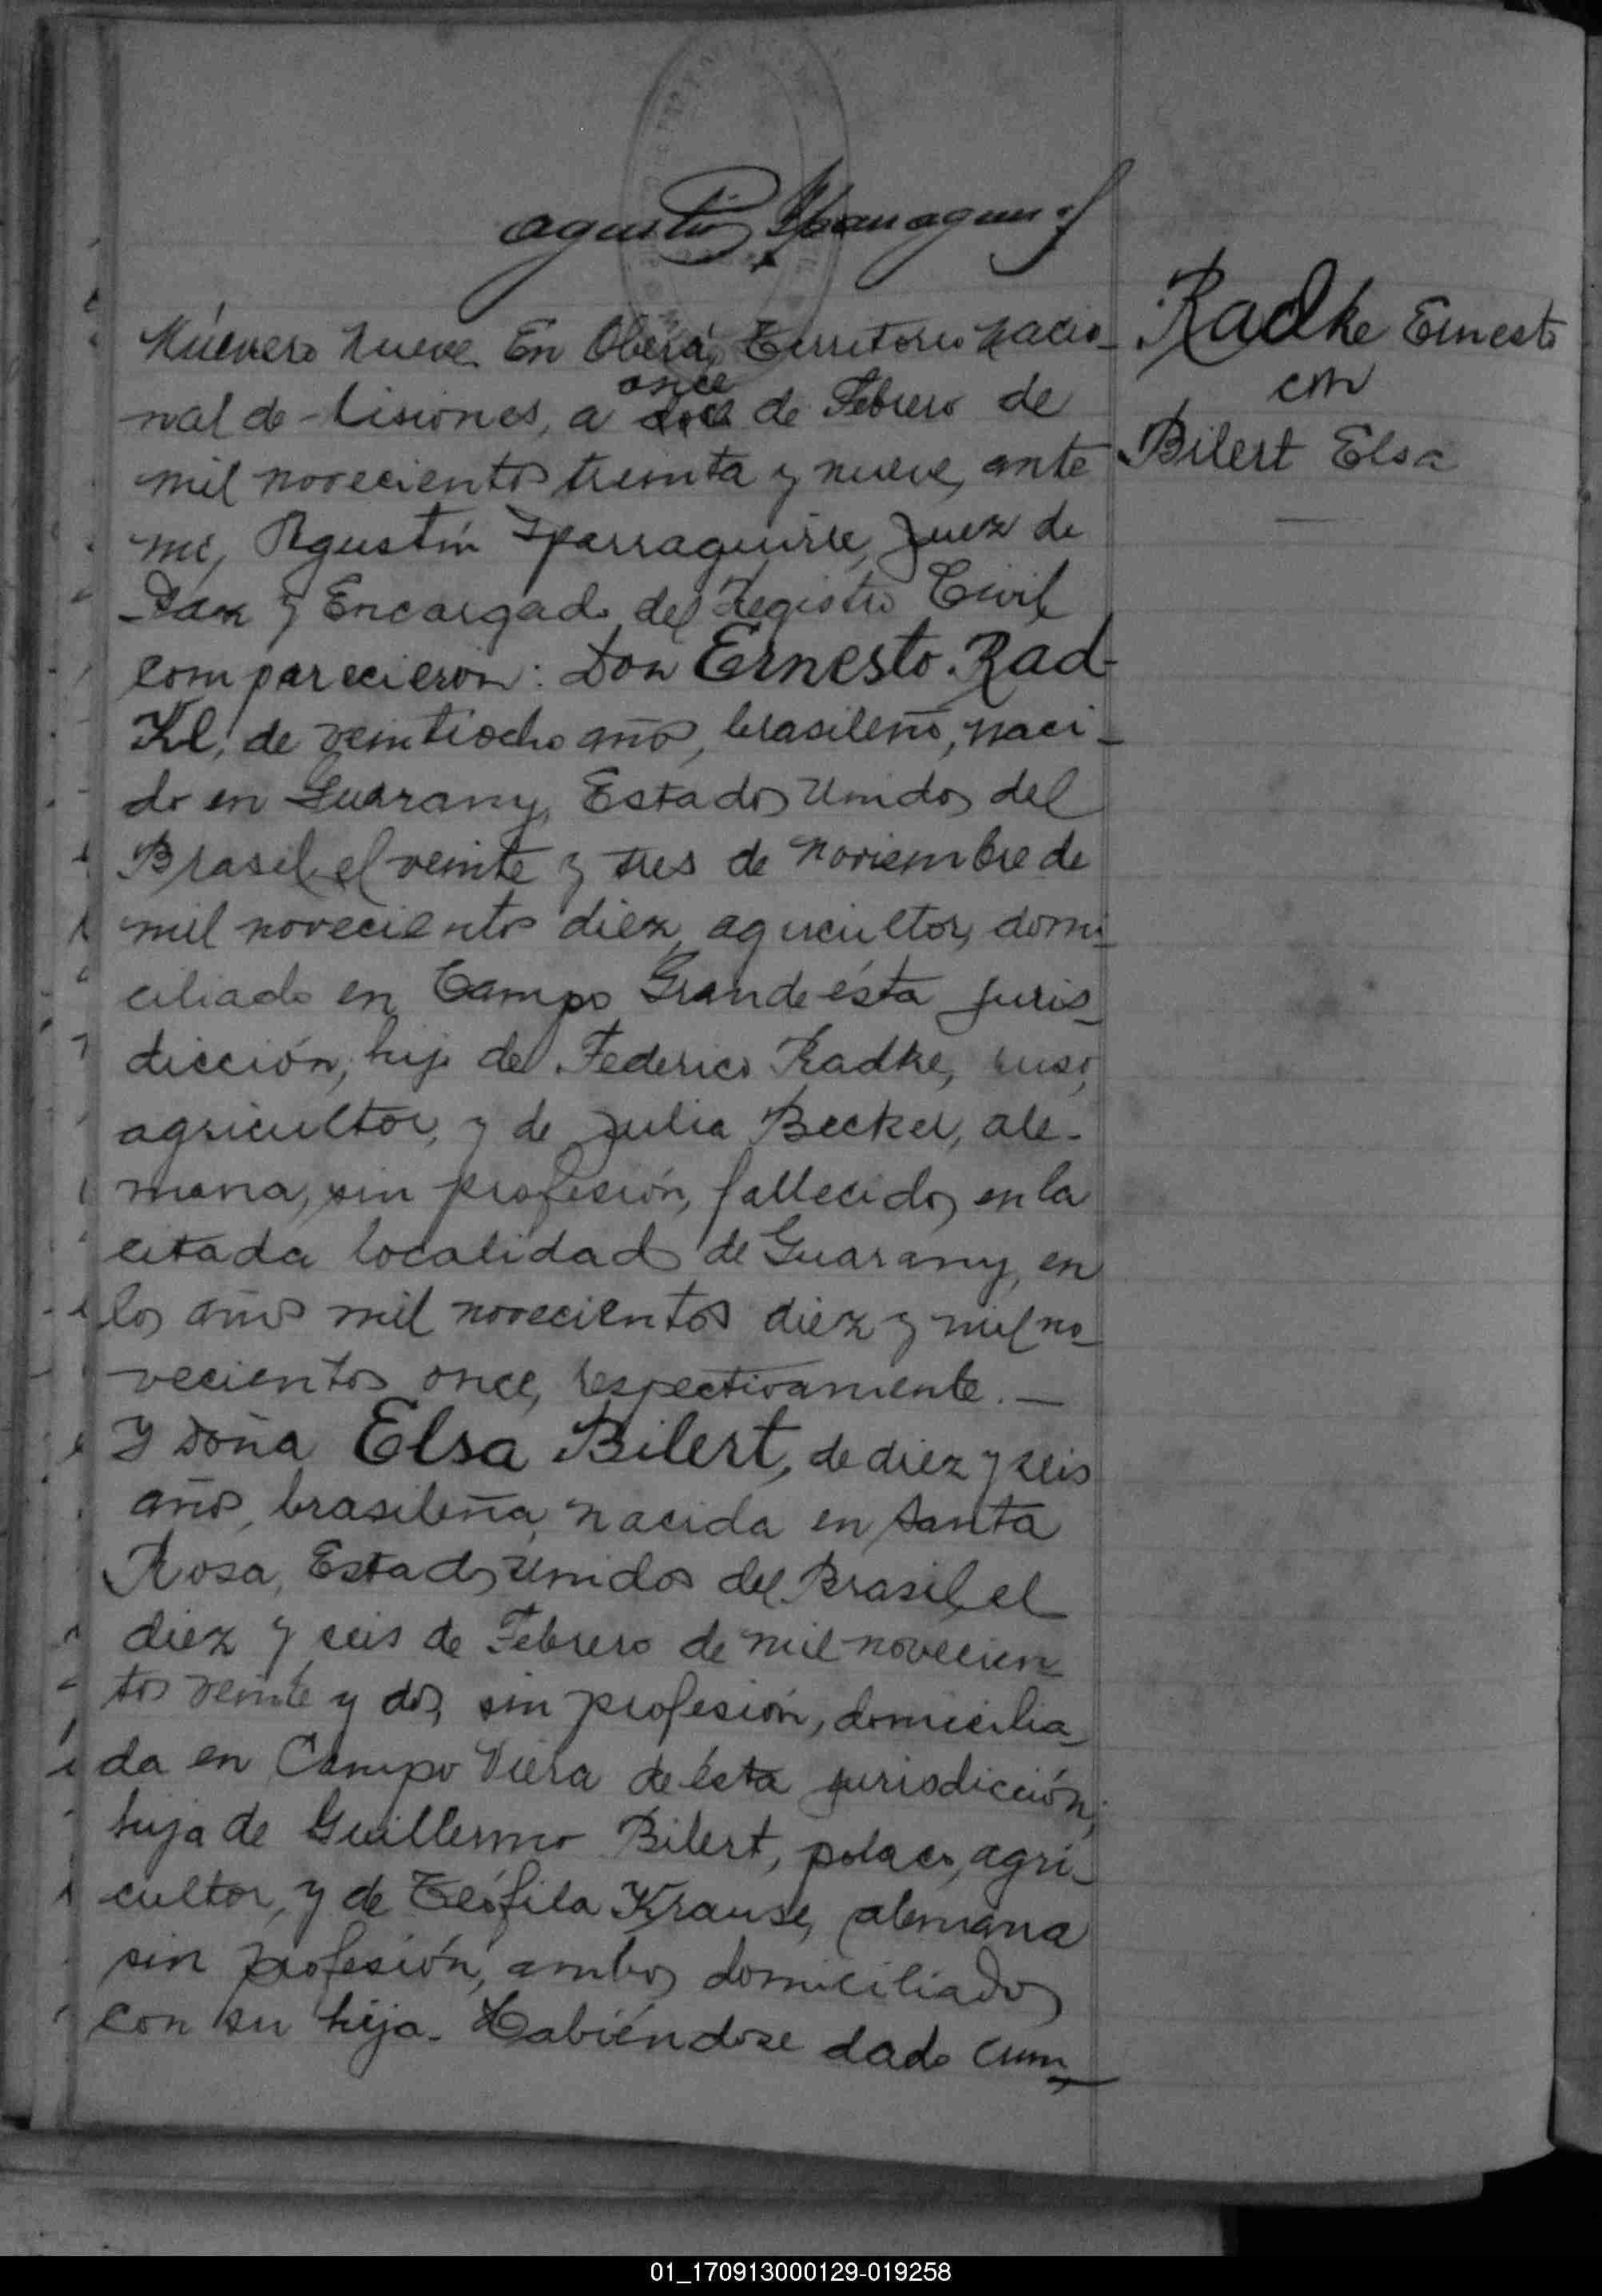 Agustín Yparraguirre
Radke Ernesto
con
Bilert Elsa
Número nueve. En Oberá, Territorio Nacio-
nal de Misiones, a once de Febrero de
mil novecientos treinta y nueve, ante
mi, Agustín Yparraguirre, Juez de
Paz y Encargado del Registro Civil
comparecieron: Don Ernesto Rad-
ke, de veintiocho años, brasileño, naci-
do en Guarany, Estados Unidos del
Brasil el veinte y tres de Noviembre de
mil novecientos diez, agricultor, domi-
ciliado en Campo Grande ésta juris-
dicción, hijo de Federico Radke, ruso,
agricultor, y de Julia Becker, ale-
mana, sin profesión, fallecidos en la
citada localidad de Guarany, en
los años mil novecientos diez y mil no-
vecientos once, respectivamente. —
Y Doña Elsa Bilert, de diez y seis
años, brasileña, nacida en Santa
Rosa, Estados Unidos del Brasil, el
diez y seis de Febrero de mil novecien-
tos veinte y dos, sin profesión, domicilia-
da en Campo Viera de ésta jurisdicción,
hija de Guillermo Bilert, polaco, agri-
cultor, y de Teófila Krause, alemana
sin profesión, ambos domiciliados
con su hija. Habiéndose dado cum-
01_170913000129-019258